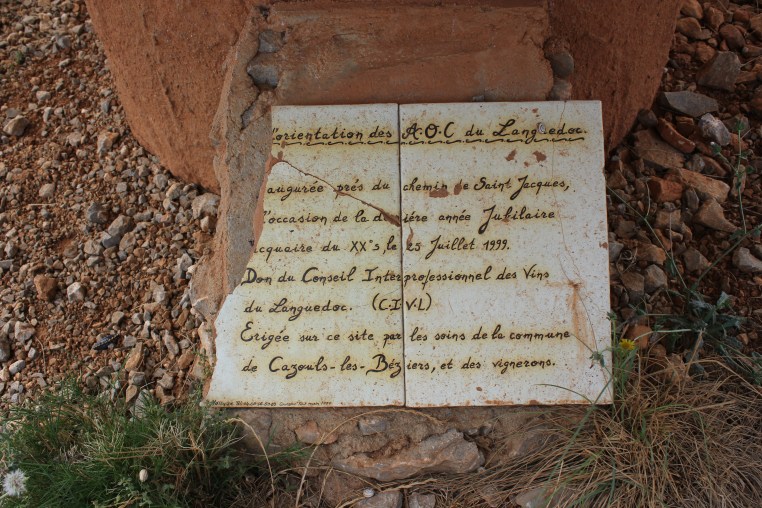 l'orientation des A.O.C du Languedoc.
augurée prés du chemin de Saint Jacques,
l'occasion de la dernière année Jubilaire
acquaire du XX°s, le 25 Juillet 1999.
Don du Conseil Interprofessionnel des Vins
du Languedoc. (C.I.V.L)
Erigée sur ce site par les soins de la commune
de Cazouls-les-Béziers, et des vignerons.